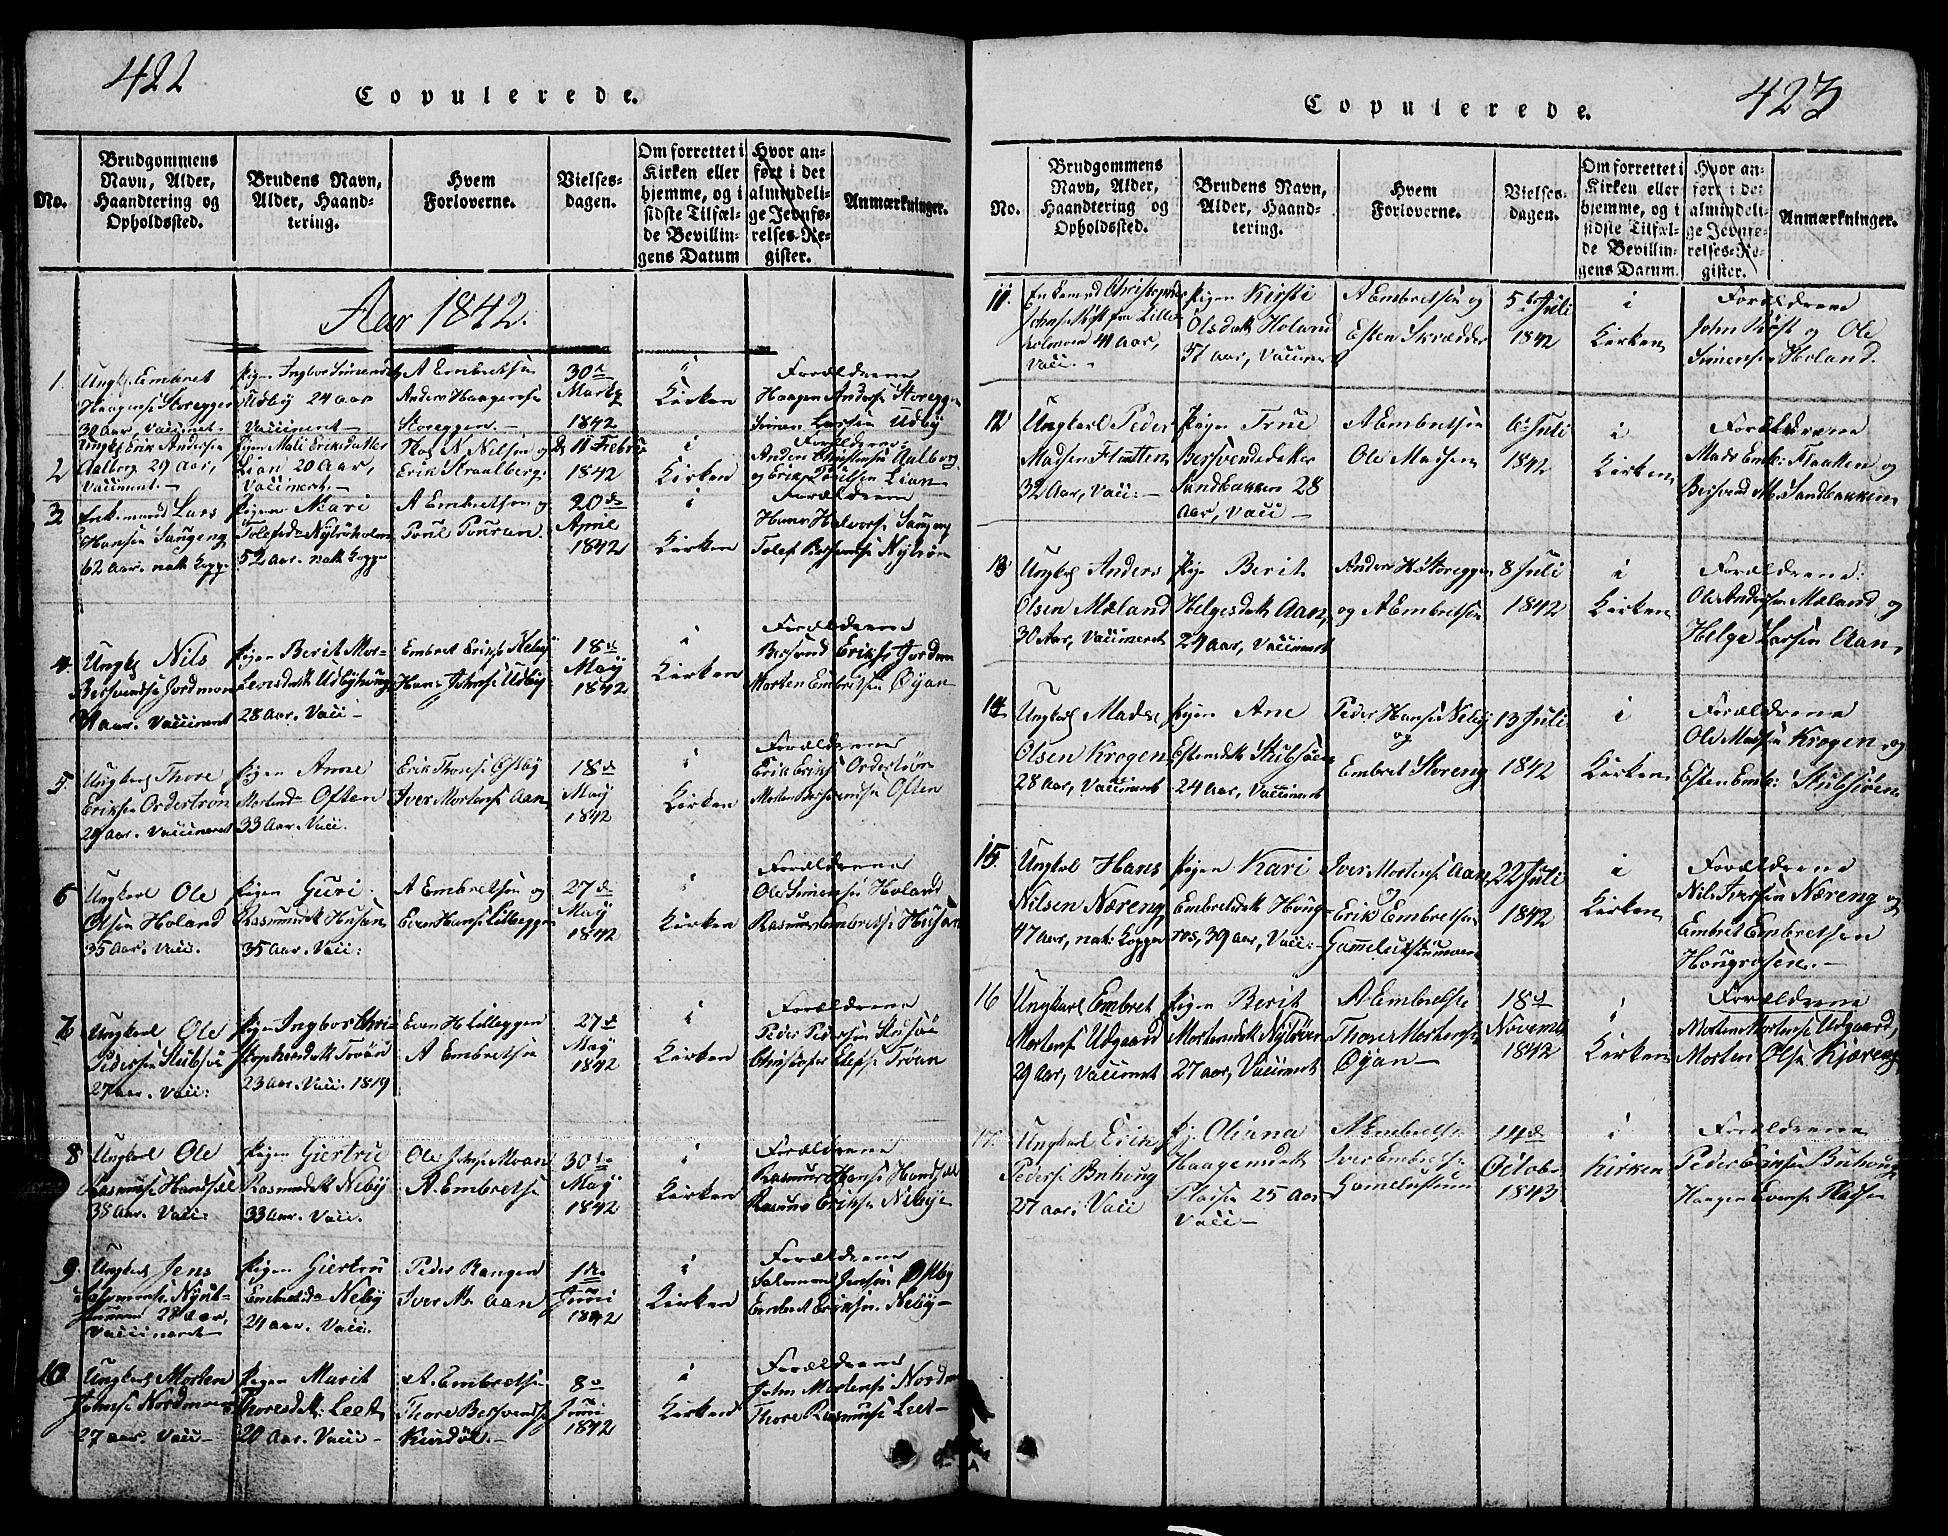 422
Copulerede.
No.
Brudgommens
Navn, Alder,
Haandtering og
Opholdssted.
Brudens Navn,
Alder, Haand-
tering.
Hvem
Forloverne.
Vielses-
dagen.
Om forrettet i
Kirken eller
hjemme, og i
sidste Tilfæl-
de Bevillin-
gens Datum
Hvor an-
ført i det
almindeli-
ge Jevnfø-
relses-Re-
gister.
Anmærkninger.
Aar 1842.
1.
Ungk. Embret
Haagens. Storeggen
30 Aar, Vaccineret.
Pigen Ingbor Simensd.
Udby 24 aar
Vaccineret.
A Embretsen
Anders Haagensen
Storeggen.
30te
Marts
1842
i
Kirken
Forældrene
Haagen Anders. Storeggen
Simen Larsen Udby
2
Ungk. Erik Andersen
Aalborg 29 aar,
Vaccineret.
Pigen Mali Eriksdatter
Lian 20 Aar,
Vaccineret.
N. Nilsen og
Erik Kraalberg
11 Febru
1842
i
Kirken
Forældrene
Anders Christensen Aalborg
og Erik Poulsen Lian
3
Enkemand Lars
Hansen Saugeng
62 Aar. nat. Kopper
Pigen Mari
Tolefsd. Nylröholm
52 aar. nat. Kopper
A Embretsen og
Poul
20de
April
1842
i
Kirken
Forældrene
Hans Halvors. Saugeng
Tolef Bersvends. Nylröe
4
Ungk. Nils
Bersvends. Jordmoen
31 aar. Vaccineret
Pigen Berit Mor-
tensdatt. Udbyhaug
28 Aar. Vacc.
Embret Eriks. Neby
Hans Johns. Udby
18de
May
1842
i
Kirken
Forældrene
Bersvend Eriks. Jordmo
Morten Embretsen Öyan
5.
Ungkarl Thore
Eriksen Ordertrøn
29 Aar. Vaccineret
Pigen Anne
Mortensd. Osten
33 Aar. Vacc.
Erik Thores. Østby
Iver Mortens. Aan
18de
May
1842
i
Kirken
Forældrene
Erik Eriks. Ordertrön
Morten Bersvendsen Osten
6
Ungkarl Ole
Olsen Holand
35 Aar. Vacc.
Pigen Guri
Rasmusdatt. Husan
35 Aar. Vacc:
A Embretsen og
Even Hans. Lilleggen
27de
May
1842
i
Kirken
Forældrene
Ole Simensen Holand
Rasmus Embrets. Husan
7.
Ungkarl Ole
Pedersen Stubsöe
27 Aar. Vacc:
Pigen Ingbor Chri-
stophersdatt. Tröan
23 Aar. Vacc. 1819
Even H. Lilleggen
A Embretsen
27de
May
1842
i
Kirken
Forældrene
Peder Pedersen Stubsöe
Christopher Olefs. Tröan
8
Ungkarl Ole
Rasmus. Hendset
35 Aar. Vacc.
Pigen Giertru
Rasmusdatt. Neby
33 Aar. Vacc.
Ole Johns. Moan
A. Embretsen
30te
May
1842
i
Kirken
Forældrene
Rasmus Hans. Hendset
Rasmus Eriksen Neby
9.
Ungkarl Jens
Salomons. Nyut-
28 Aar,
Vaccineret
Pigen Giertru
Embretsd. Neby
24 aar. Vacc.
Peder Rangen
Iver M. Aan
1te
Juni
1842
i
Kirken
Forældrene
Salomon Jensen Østby
Embret Eriksen. Neby
10
Ungkarl Morten
Johns. Nordmoen
27 aar. Vacc
Pigen Marit
Thoresdatt. Leet
20 Aar. Vacc
A. Embretsen
Thore Bersvends.
Kindöl.
8de
Juni
1842
i
Kirken
Forældrene
John Mortens. Nordmo
Thore Rasmus. Leet
423
Copulerede.
No.
Brudgommens
Navn, Alder,
Haandtering og
Opholdssted.
Brudens Navn,
Alder, Haand-
tering.
Hvem
Forloverne.
Vielses-
dagen.
Om forrettet i
Kirken eller
hjemme, og i
sidste Tilfæl-
de Bevillin-
gens Datum.
Hvor an-
ført i det
almindeli-
ge Jevnfø-
relses-Re-
gister.
Anmærkninger.
11.
Enkemand Christopher
Johnsen Röst fra Lille
41 Aar,
Vacc.
Pigen Kirsti
Olsdatt Holand
37 aar, Vaccineret
A Embretsen og
Esten Skrædder
5te Juli
1842
i
Kirken
Forældrene
John Röst og Ole
Simensen Holand.
12
Ungkarl Peder
Madsen Flaatten
32 Aar, Vacc:
Pigen True
Bersvendsdatter
Sandbakken 28
Aar, Vacc
A Embretsen
Ole Madsen
6te Juli
1842
i
Kirken
Forældrene
Mads Emb. Flaatten og
Bersvend M. Sandbakken
13
Ungkarl Anders
Olsen Mæland
30 Aar, Vaccineret
Pige Berit
Helgesdatt Aan,
24 aar, Vaccineret
Anders H. Storeggen
og A Embretsen
8 Juli
1842
i
Kirken
Forældrene:
Ole Andersen Mæland og
Helge Larsen Aan.
14
Ungkarl Mads
Olsen Krogen
28 Aar, Vaccineret
Pigen Ane
Estensdatt Stubsöen
24 Aar, Vaccineret
Peder Hans. Neby
og
Embret Storeng
13 Juli
1842
i
Kirken
Forældrene
Ole Madsen Krogen og
Esten Emb: Stubsöen
15.
Ungkarl Hans
Nilsen Næreng
47 Aar, nat: Kopper
Pigen Kari
Embretsdatt Houg-
ros, 39 aar, Vacc:
Iver Mortens. Aan
og
Erik Embretsen
Gammelutstumoen
22 Juli
1842
i
Kirken
Forældrene
Nils Iversen Næreng og
Embret Embretsen
Hougrosen.
16
Ungkarl Embret
Mortens. Udgaard
29 Aar, Vaccineret
Pigen Berit
Mortensdatt Nylöven
27 aar, Vaccineret
A Embretsen
Thore Mortensen
Öyan
18de
Novemb
1842
i
Kirken
Forældrene
Morten Mortens. Udgaard,
Morten Olsen Kjæreng
17.
Ungkarl Erik
Peders. Buhoug
27 aar. Vacc
Pig. Oliana
Haagensdatt
Pladsen 25 Aar
Vacc
A Embretsen
Iver Embretsen
Gamelutstum
14de
October
1843
i
Kirken
Forældrene
Peder Eriksen Buhoug
Haagen Evens. Pladsen